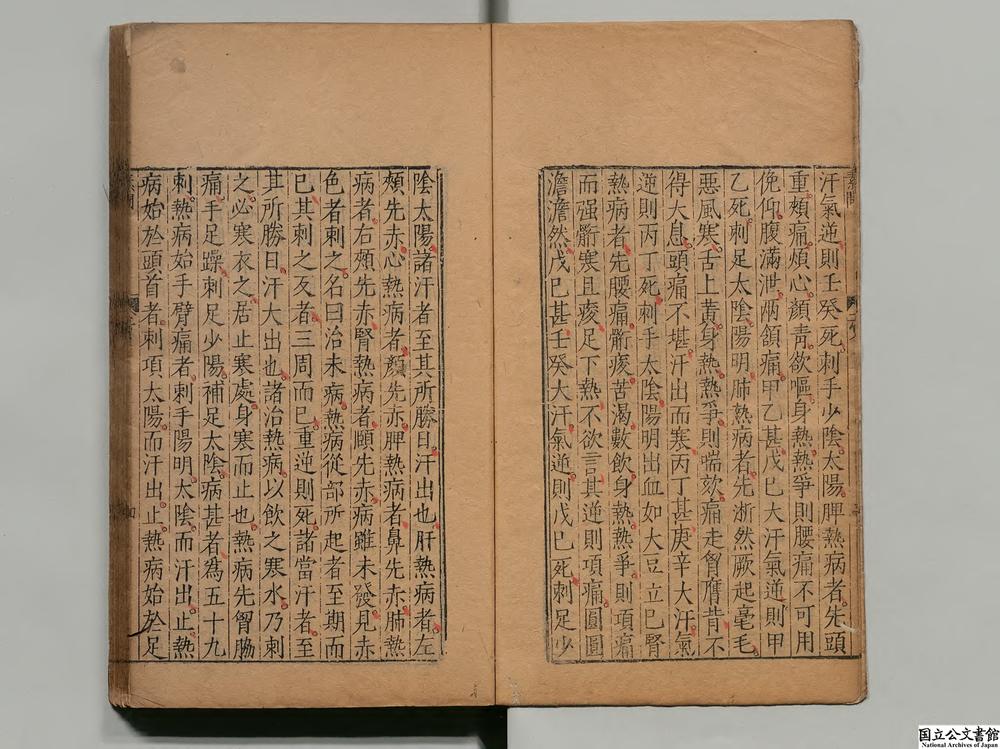 汗氣逆則壬癸死刺手少陰太陽脾熱病者先頭
重頰痛煩心顏靑欲嘔身熱熱爭則腰痛不可用
俛仰腹滿泄兩頷痛甲乙甚戊己大汗氣逆則甲
乙死刺足太陰陽明肺熱病者先淅然厥起毫毛
惡風寒舌上黃身熱熱爭則喘欬痛走胷膺背不
得大息頭痛不堪汗出而寒丙丁甚庚辛大汗氣
逆則丙丁死刺手太陰陽明出血如大豆立已腎
熱病者先腰痛䯒痠苦渴數飲身熱熱爭則項痛
而强䯒寒且痠足下熱不欲言其逆則項痛圓圓
澹澹然戊己甚壬癸大汗氣逆則戊己死刺足少
陰太陽諸汗者至其所勝日汗出也肝熱病者左
頰先赤心熱病者顏先赤脾熱病者鼻先赤肺熱
病者右頰先赤腎熱病者頤先赤病雖未發見赤
色者刺之名曰治未病熱病從部所起者至期而
已其刺之反者三周而已重逆則死諸當汗者至
其所勝日汗大出也諸治熱病以飲之寒水乃刺
之必寒衣之居止寒處身寒而止也熱病先胷脇
痛手足躁刺足少陽補足太陰病甚者爲五十九
刺熱病始手臂痛者刺手陽明太陰而汗出止熱
病始於頭首者刺項太陽而汗出止熱病始於足
国立公文書館
National Archives of Japan